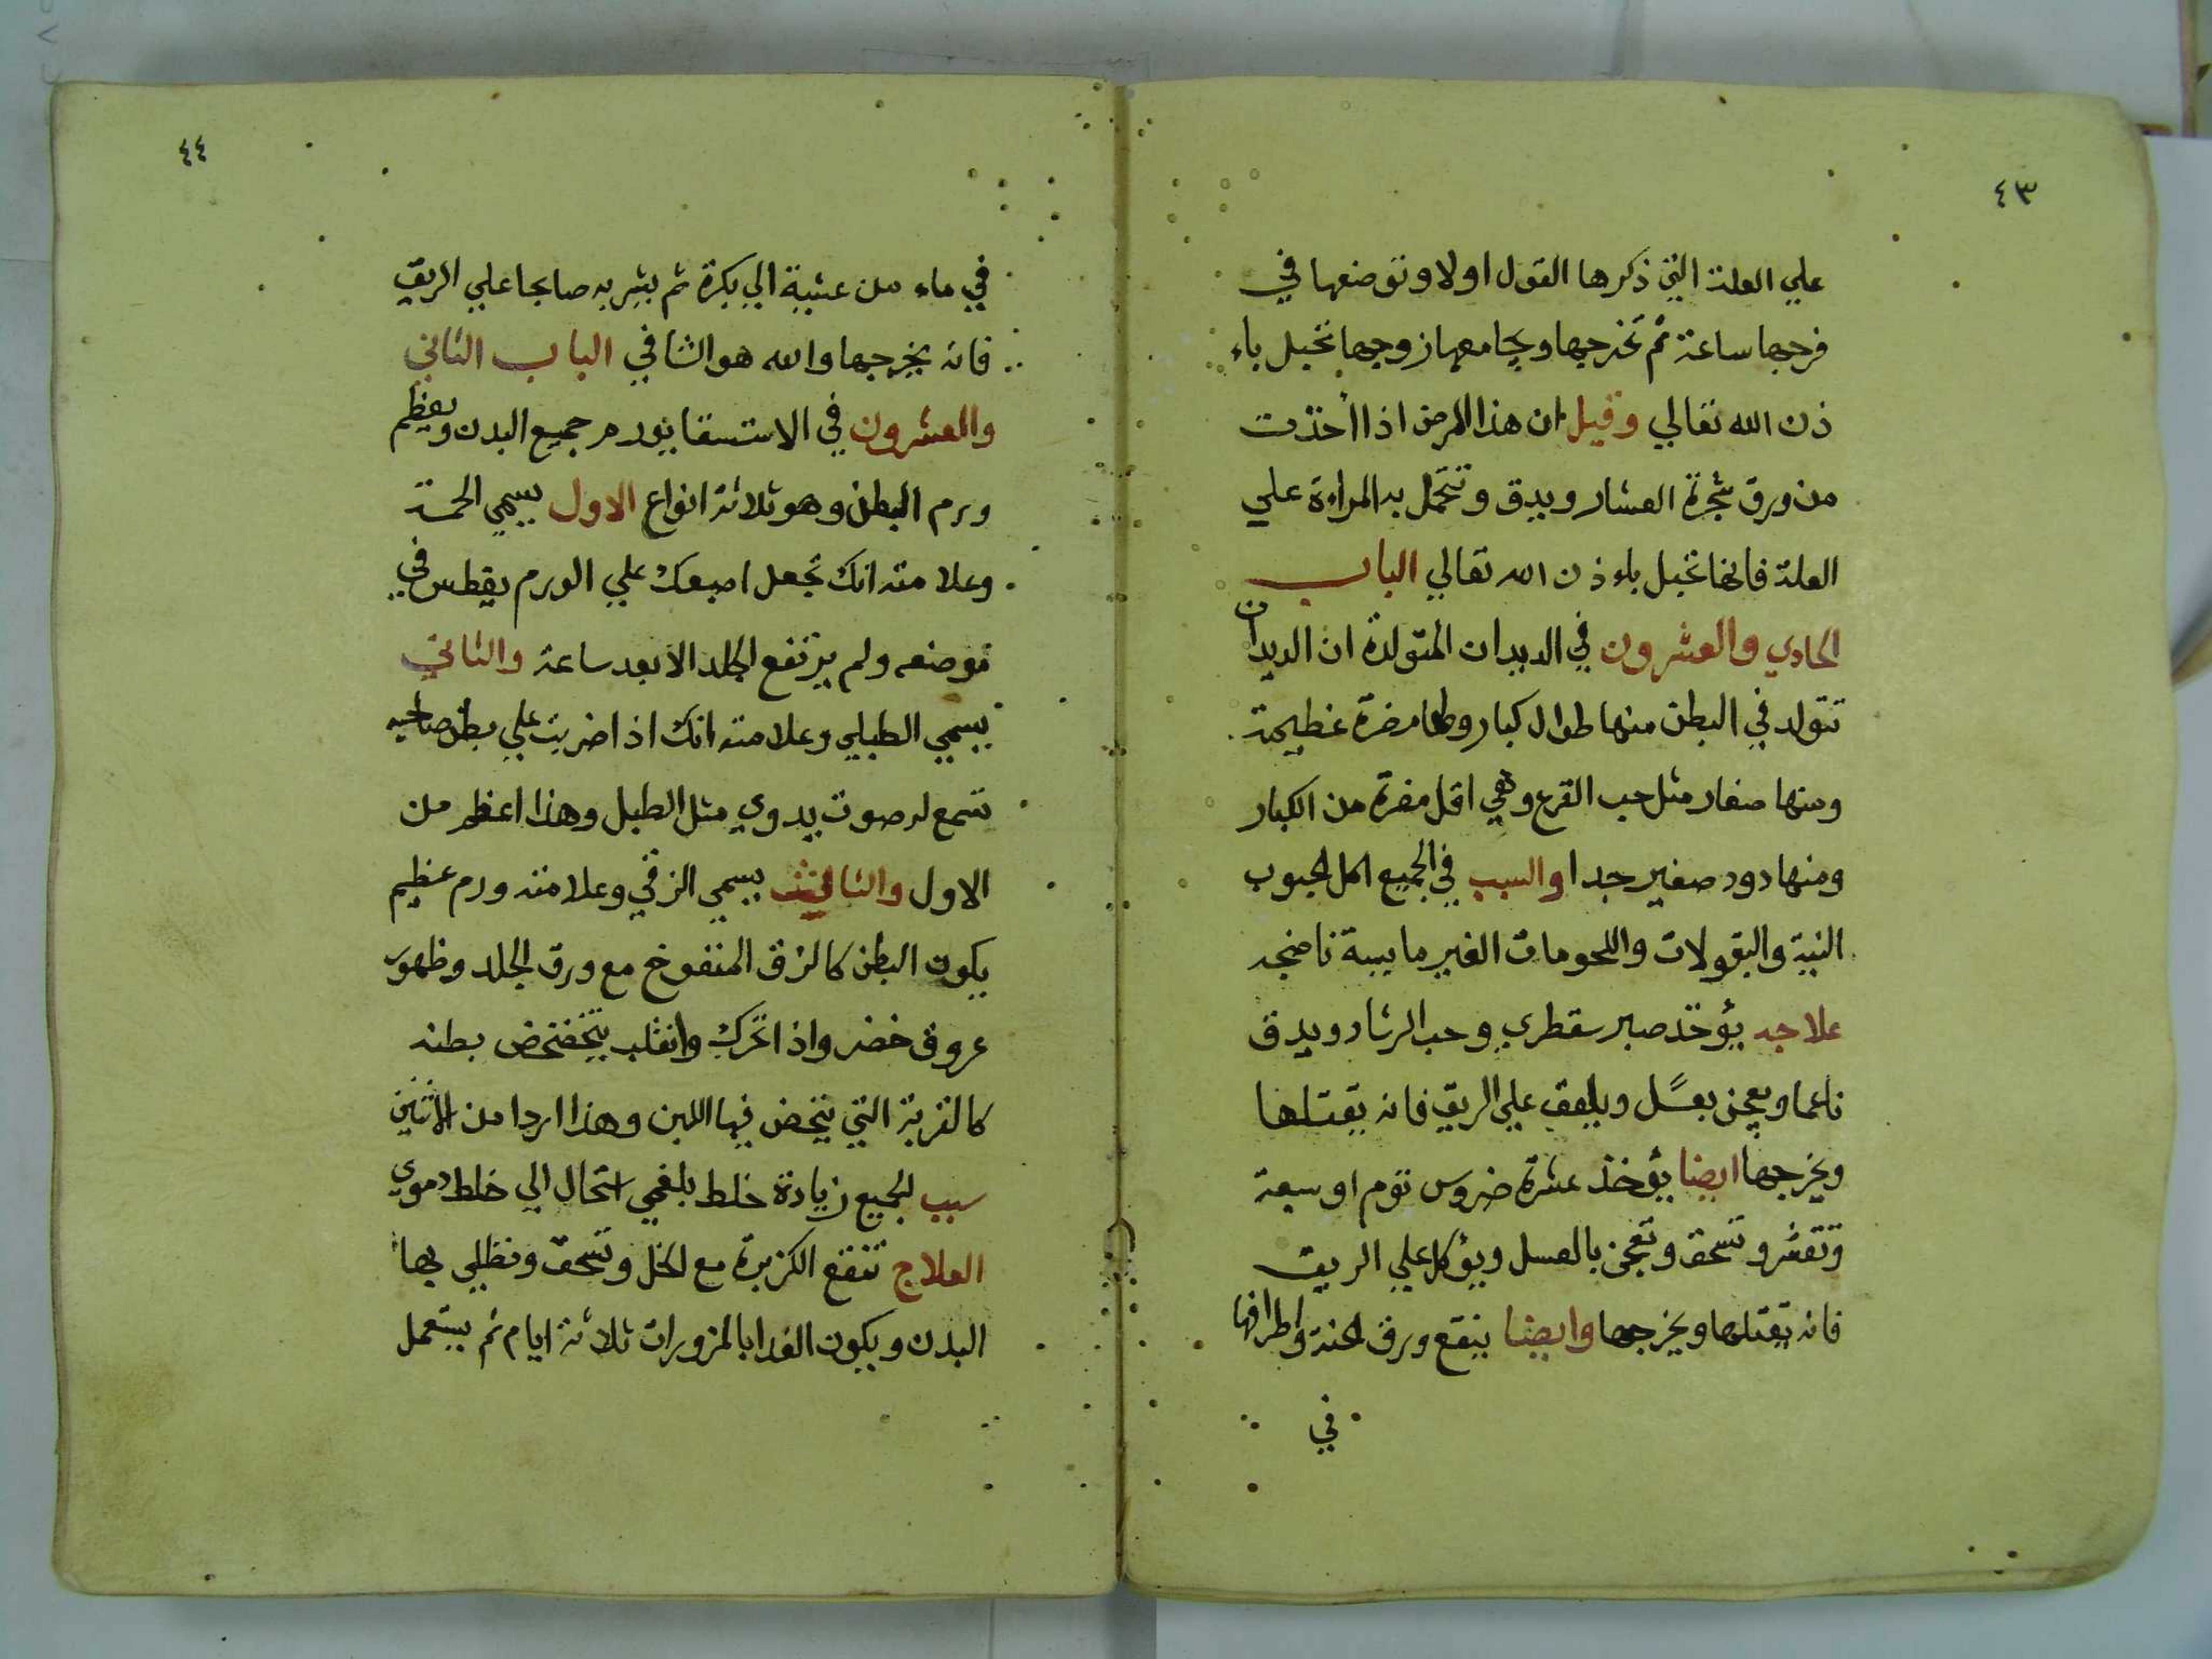 ٤٣
علي العلة التي ذكرها القول اولا وتوضعها في
فرجها ساعة ثم تخرجها ويجامعها زوجها تحبل باء
ذن الله تعالي وقيل ان هذا المرض اذا أخذت
من ورق شجرة العشار ويدق وتتحمل به المراءة علي
العلة فانها تحبل باءذن الله تعالي الباب
الحادي والعشرون في الديدان المتولدة ان الديدان
تتولد في البطن منها طوال كبار ولها مضرة عظيمة
ومنها صغار مثل حب القرع وهي اقل مضرة من الكبار
ومنها دود صغير جدا والسبب في الجميع اكل الحبوب
النية والبقولات واللحومات الغير ما يسة ناضجه
علاجه يؤخذ صبر سقطري وحب الرشاد ويدق
ناعما ويعجن بعسل ويلعق علي الريق فانه يقتلها
ويخرجها ايضا يؤخذ عشرة ضروس توم او سبعة
وتقشر وتسحق وتعجن بالعسل ويؤكل علي الريق
فانه يقتلها ويخرجها وايضا ينقع ورق الحنة واطرافها
في
٤٤
في ماء من عشية الي بكرة ثم يشربه صابحا علي الريق
فانه يخرجها والله هو الشافي الباب الثاني
والعشرون في الاستسقا يورم جميع البدن ويعظم
ورم البطن وهو ثلاثة انواع الاول يسمي الحمة
وعلامته انك تجعل اصبعك علي الورم يقطس في
موضعه ولم يرتفع الجلد الا بعد ساعة والثاني
يسمي الطبلي وعلامته انك اذا ضربت علي بطن صاحبه
تسمع له صوت يدوي مثل الطبل وهذا اعظم من
الاول والثالث يسمي الزقي وعلامته ورم عظيم
يكون البطن كالزق المنفوخ مع ورق الجلد وظهور
عروق خضر واذا تحرك وانقلب يتخضخض بطنه
كالقربة التي يتخض فيها اللبن وهذا اردا من الاثنين
سبب لجميع زيادة خلط بلغمي استحال الي خلط دموي
العلاج تنقع الكزبرة مع الخل وتسحق وتطلي بها
البدن ويكون الغدا بالمزورات ثلاثة ايام ثم يستعمل